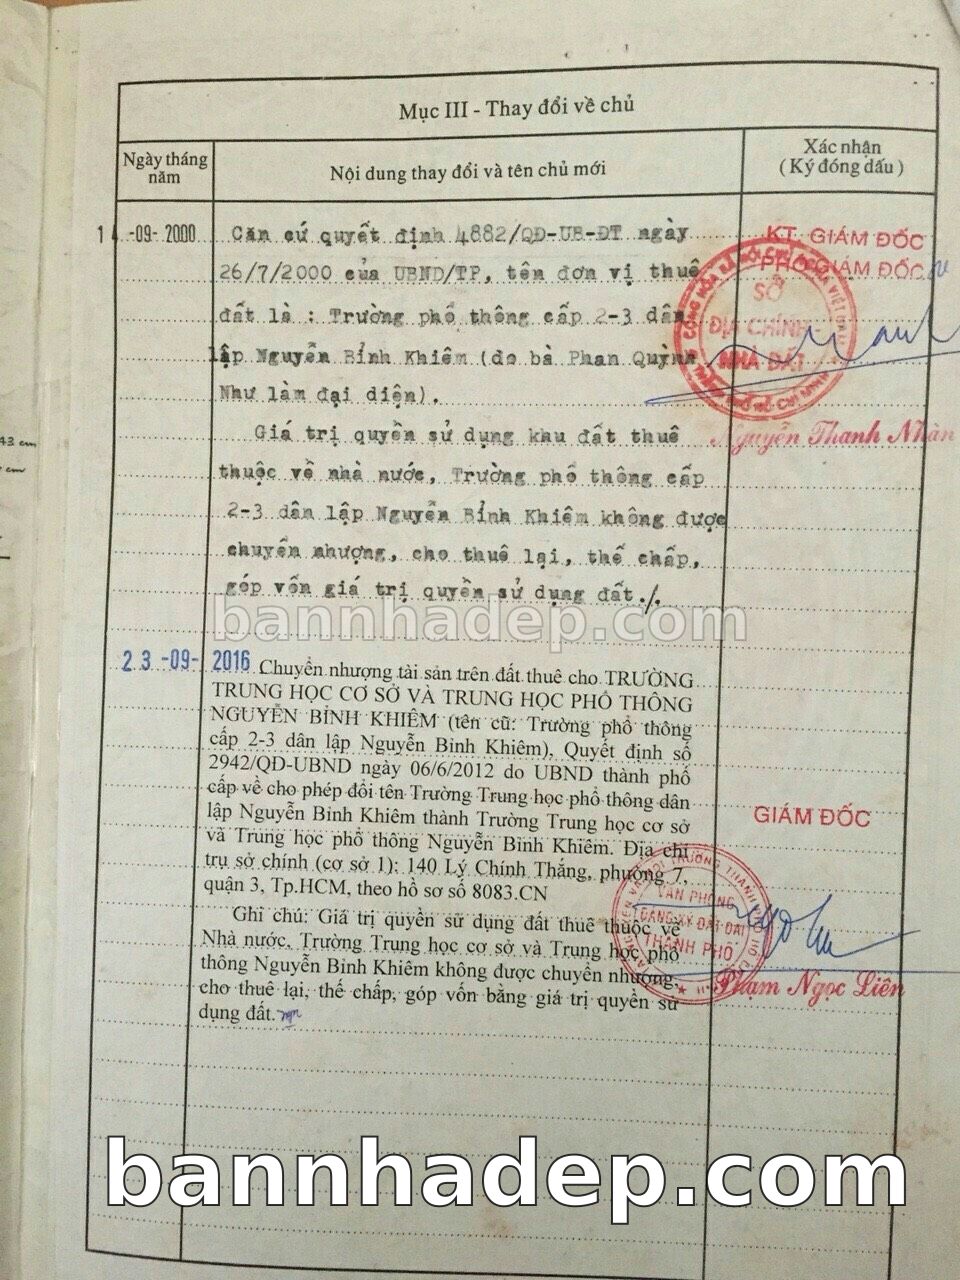 Mục III - Thay đổi về chủ
Ngày tháng năm
Nội dung thay đổi và tên chủ mới
Xác nhận
( Ký đóng dấu )
14 -09- 2000
Căn cứ quyết định 4882/QĐ-UB-ĐT ngày
26/7/2000 của UBND/TP, tên đơn vị thuê
đất là : Trường phổ thông cấp 2-3 dân
lập Nguyễn Bỉnh Khiêm (do bà Phan Quỳnh
Như làm đại diện).
Giá trị quyền sử dụng khu đất thuê
thuộc về nhà nước, Trường phổ thông cấp
2-3 dân lập Nguyễn Bỉnh Khiêm không được
chuyển nhượng, cho thuê lại, thế chấp,
góp vốn giá trị quyền sử dụng đất./.
KT. GIÁM ĐỐC
PHÓ GIÁM ĐỐC
SỞ
ĐỊA CHÍNH -
NHÀ ĐẤT
THÀNH PHỐ HỒ CHÍ MINH
Nguyễn Thanh Nhàn
43 cm
cm
bannhadep.com
23 -09- 2016
Chuyển nhượng tài sản trên đất thuê cho TRƯỜNG
TRUNG HỌC CƠ SỞ VÀ TRUNG HỌC PHỔ THÔNG
NGUYỄN BỈNH KHIÊM (tên cũ: Trường phổ thông
cấp 2-3 dân lập Nguyễn Bỉnh Khiêm), Quyết định số
2942/QĐ-UBND ngày 06/6/2012 do UBND thành phố
cấp về cho phép đổi tên Trường Trung học phổ thông dân
lập Nguyễn Bỉnh Khiêm thành Trường Trung học cơ sở
và Trung học phổ thông Nguyễn Bỉnh Khiêm. Địa chỉ
trụ sở chính (cơ sở 1): 140 Lý Chính Thắng, phường 7,
quận 3, Tp.HCM, theo hồ sơ số 8083.CN
Ghi chú: Giá trị quyền sử dụng đất thuê thuộc về
Nhà nước, Trường Trung học cơ sở và Trung học phổ
thông Nguyễn Bỉnh Khiêm không được chuyển nhượng,
cho thuê lại, thế chấp, góp vốn bằng giá trị quyền sử
dụng đất.
GIÁM ĐỐC
VĂN PHÒNG
ĐĂNG KÝ ĐẤT ĐAI
THÀNH PHỐ
Phạm Ngọc Liên
bannhadep.com